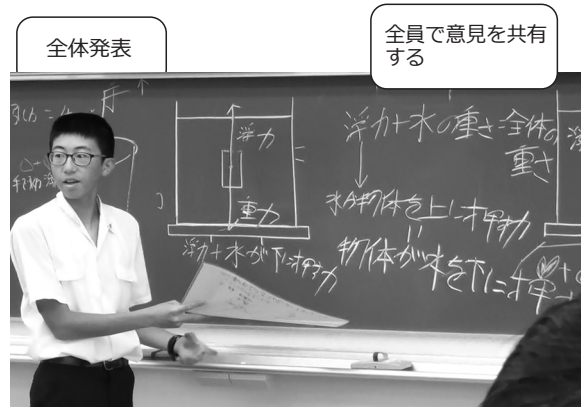 全体発表
全員で意見を共有
する
浮力
重力
浮力+水が下に押す力
浮力+水の重さ=全体の
重さ
水が物体を上に押す力
=
物体が水を下に押